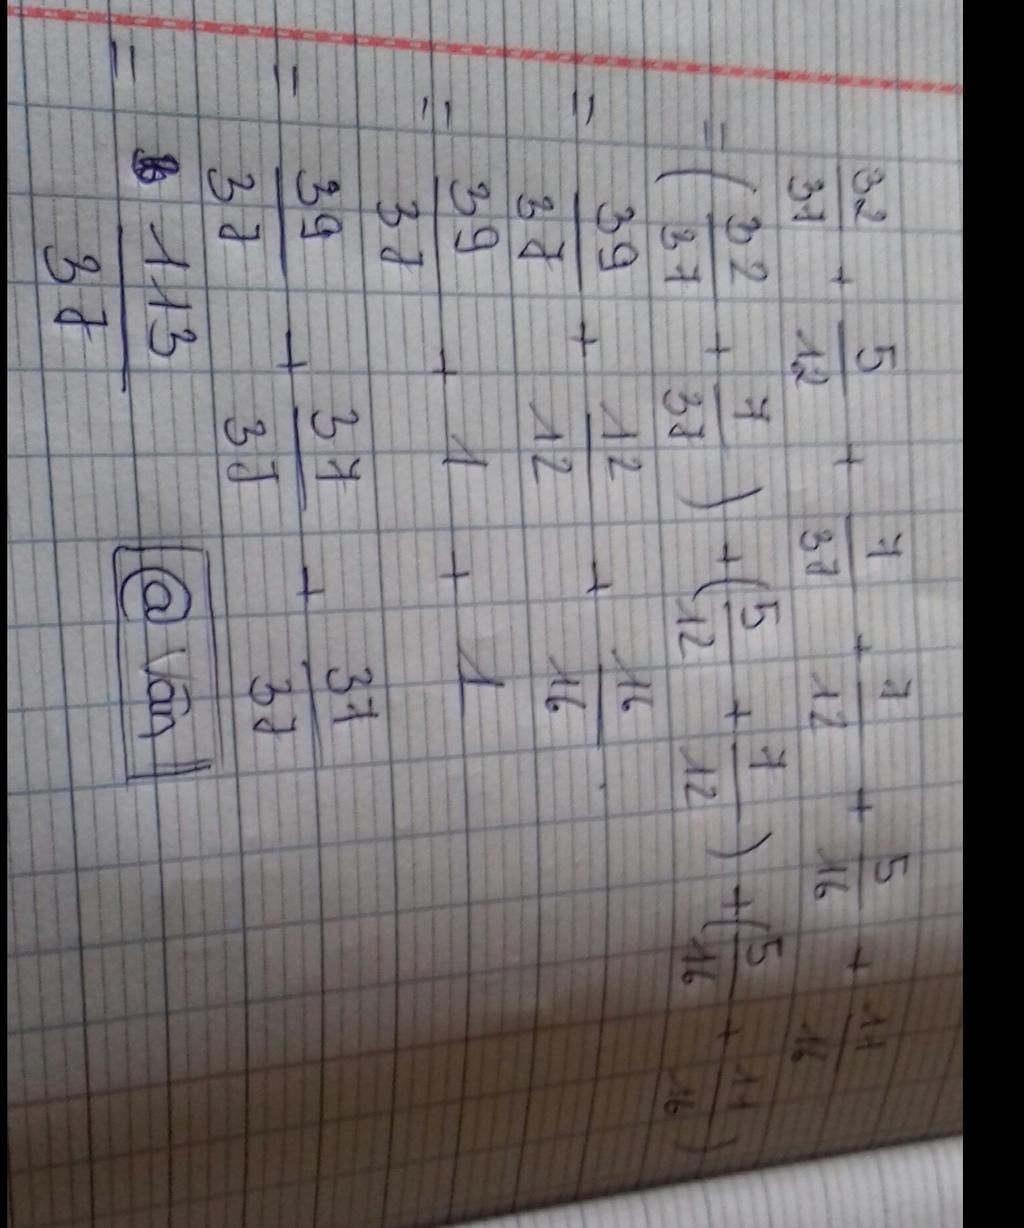 32/37 + 5/12 + 7/37 + 7/12 + 5/16 + 11/16
= (32/37 + 7/37) + (5/12 + 7/12) + (5/16 + 11/16)
= 39/37 + 12/12 + 16/16
= 39/37 + 1 + 1
= 39/37 + 37/37 + 37/37
= 113/37
@ Vân